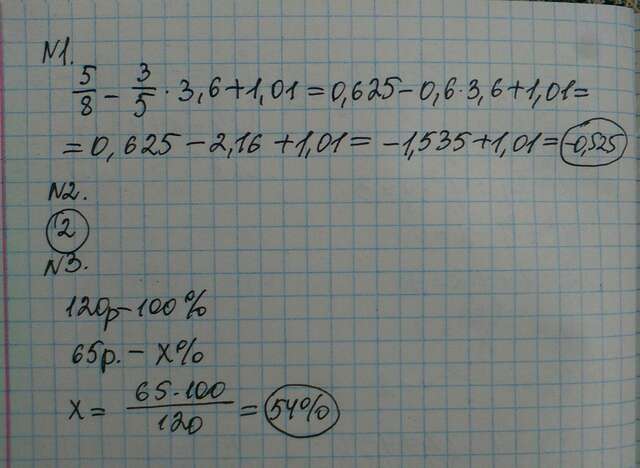 N1.
5/8 - 3/5 · 3,6 + 1,01 = 0,625 - 0,6 · 3,6 + 1,01 =
= 0,625 - 2,16 + 1,01 = -1,535 + 1,01 = -0,525
N2.
2
N3.
120р - 100%
65р. - х%
х = 65·100/120 = 54%